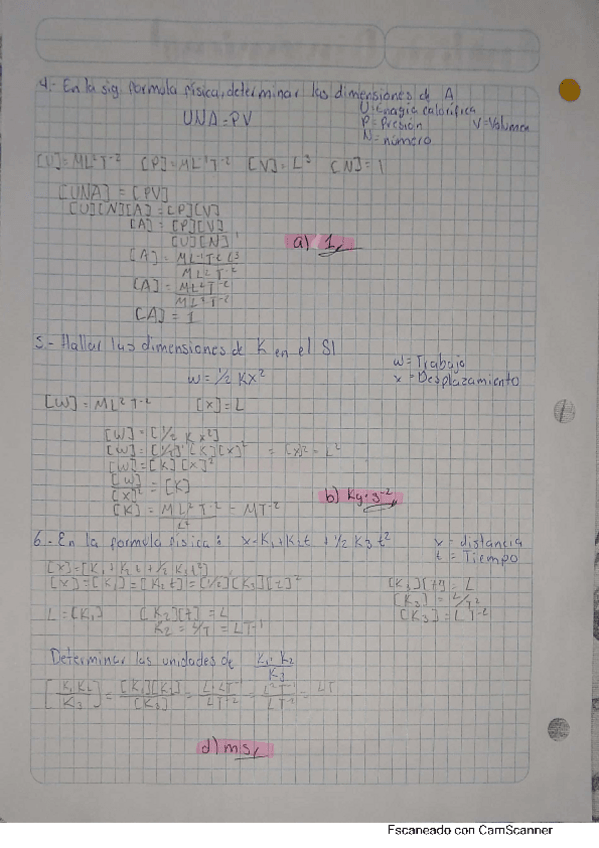 4.- En la sig. formula física, determinar las dimensiones de A
U: Enagia calorífica
UNA = PV
P = Presión V = Volumen
N = número
[U] = ML²T⁻² [P] = ML⁻¹T⁻² [V] = L³ [N] = 1
[UNA] = [PV]
[U][N][A] = [P][V]
[A] = [P][V]
[U][N]
a) 1
[A] = ML⁻¹T⁻² L³
ML² T⁻²
[A] = ML² T⁻²
ML² T⁻²
[A] = 1
5.- Hallar las dimensiones de K en el SI
w = Trabajo
w = ½ KX²
x = Desplazamiento
[W] = ML² T⁻² [x] = L
[W] = [½ K x²]
[W] = [½] [K][x]² = [x]² = L²
[W] = [K] [x]²
[W] = [K]
[x]²
b) Kg·s⁻²
[K] = ML² T⁻² = MT⁻²
L²
6.- En la formula física: x = K₁ + K₂t + ½ K₃ t²
x = distancia
t = Tiempo
[x] = [K₁ + K₂ t + ½ K₃ t²]
[x] = [K₁] = [K₂ t] = [½][K₃][t]²
[K₃] = L/T²
[K₃] = L T⁻²
L = [K₁] [K₂][t] = L
K₂ = L/T = LT⁻¹
Determinar las unidades de K₁ · K₂
K₃
[K₁ K₂ / K₃] = [K₁][K₂] / [K₃] = L · LT⁻¹ / LT⁻² = = LT
d) m·s
Escaneado con CamScanner